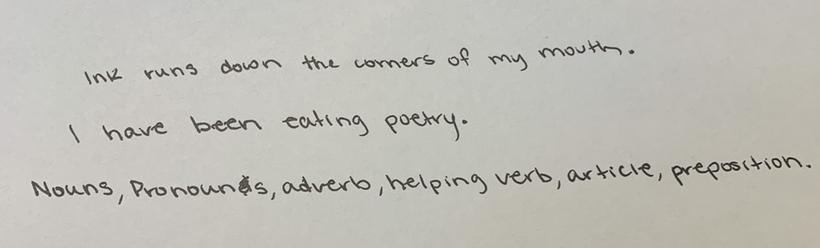 Ink runs down the corners of my mouth.
I have been eating poetry.
Nouns, Pronouns, adverb, helping verb, article, preposition.